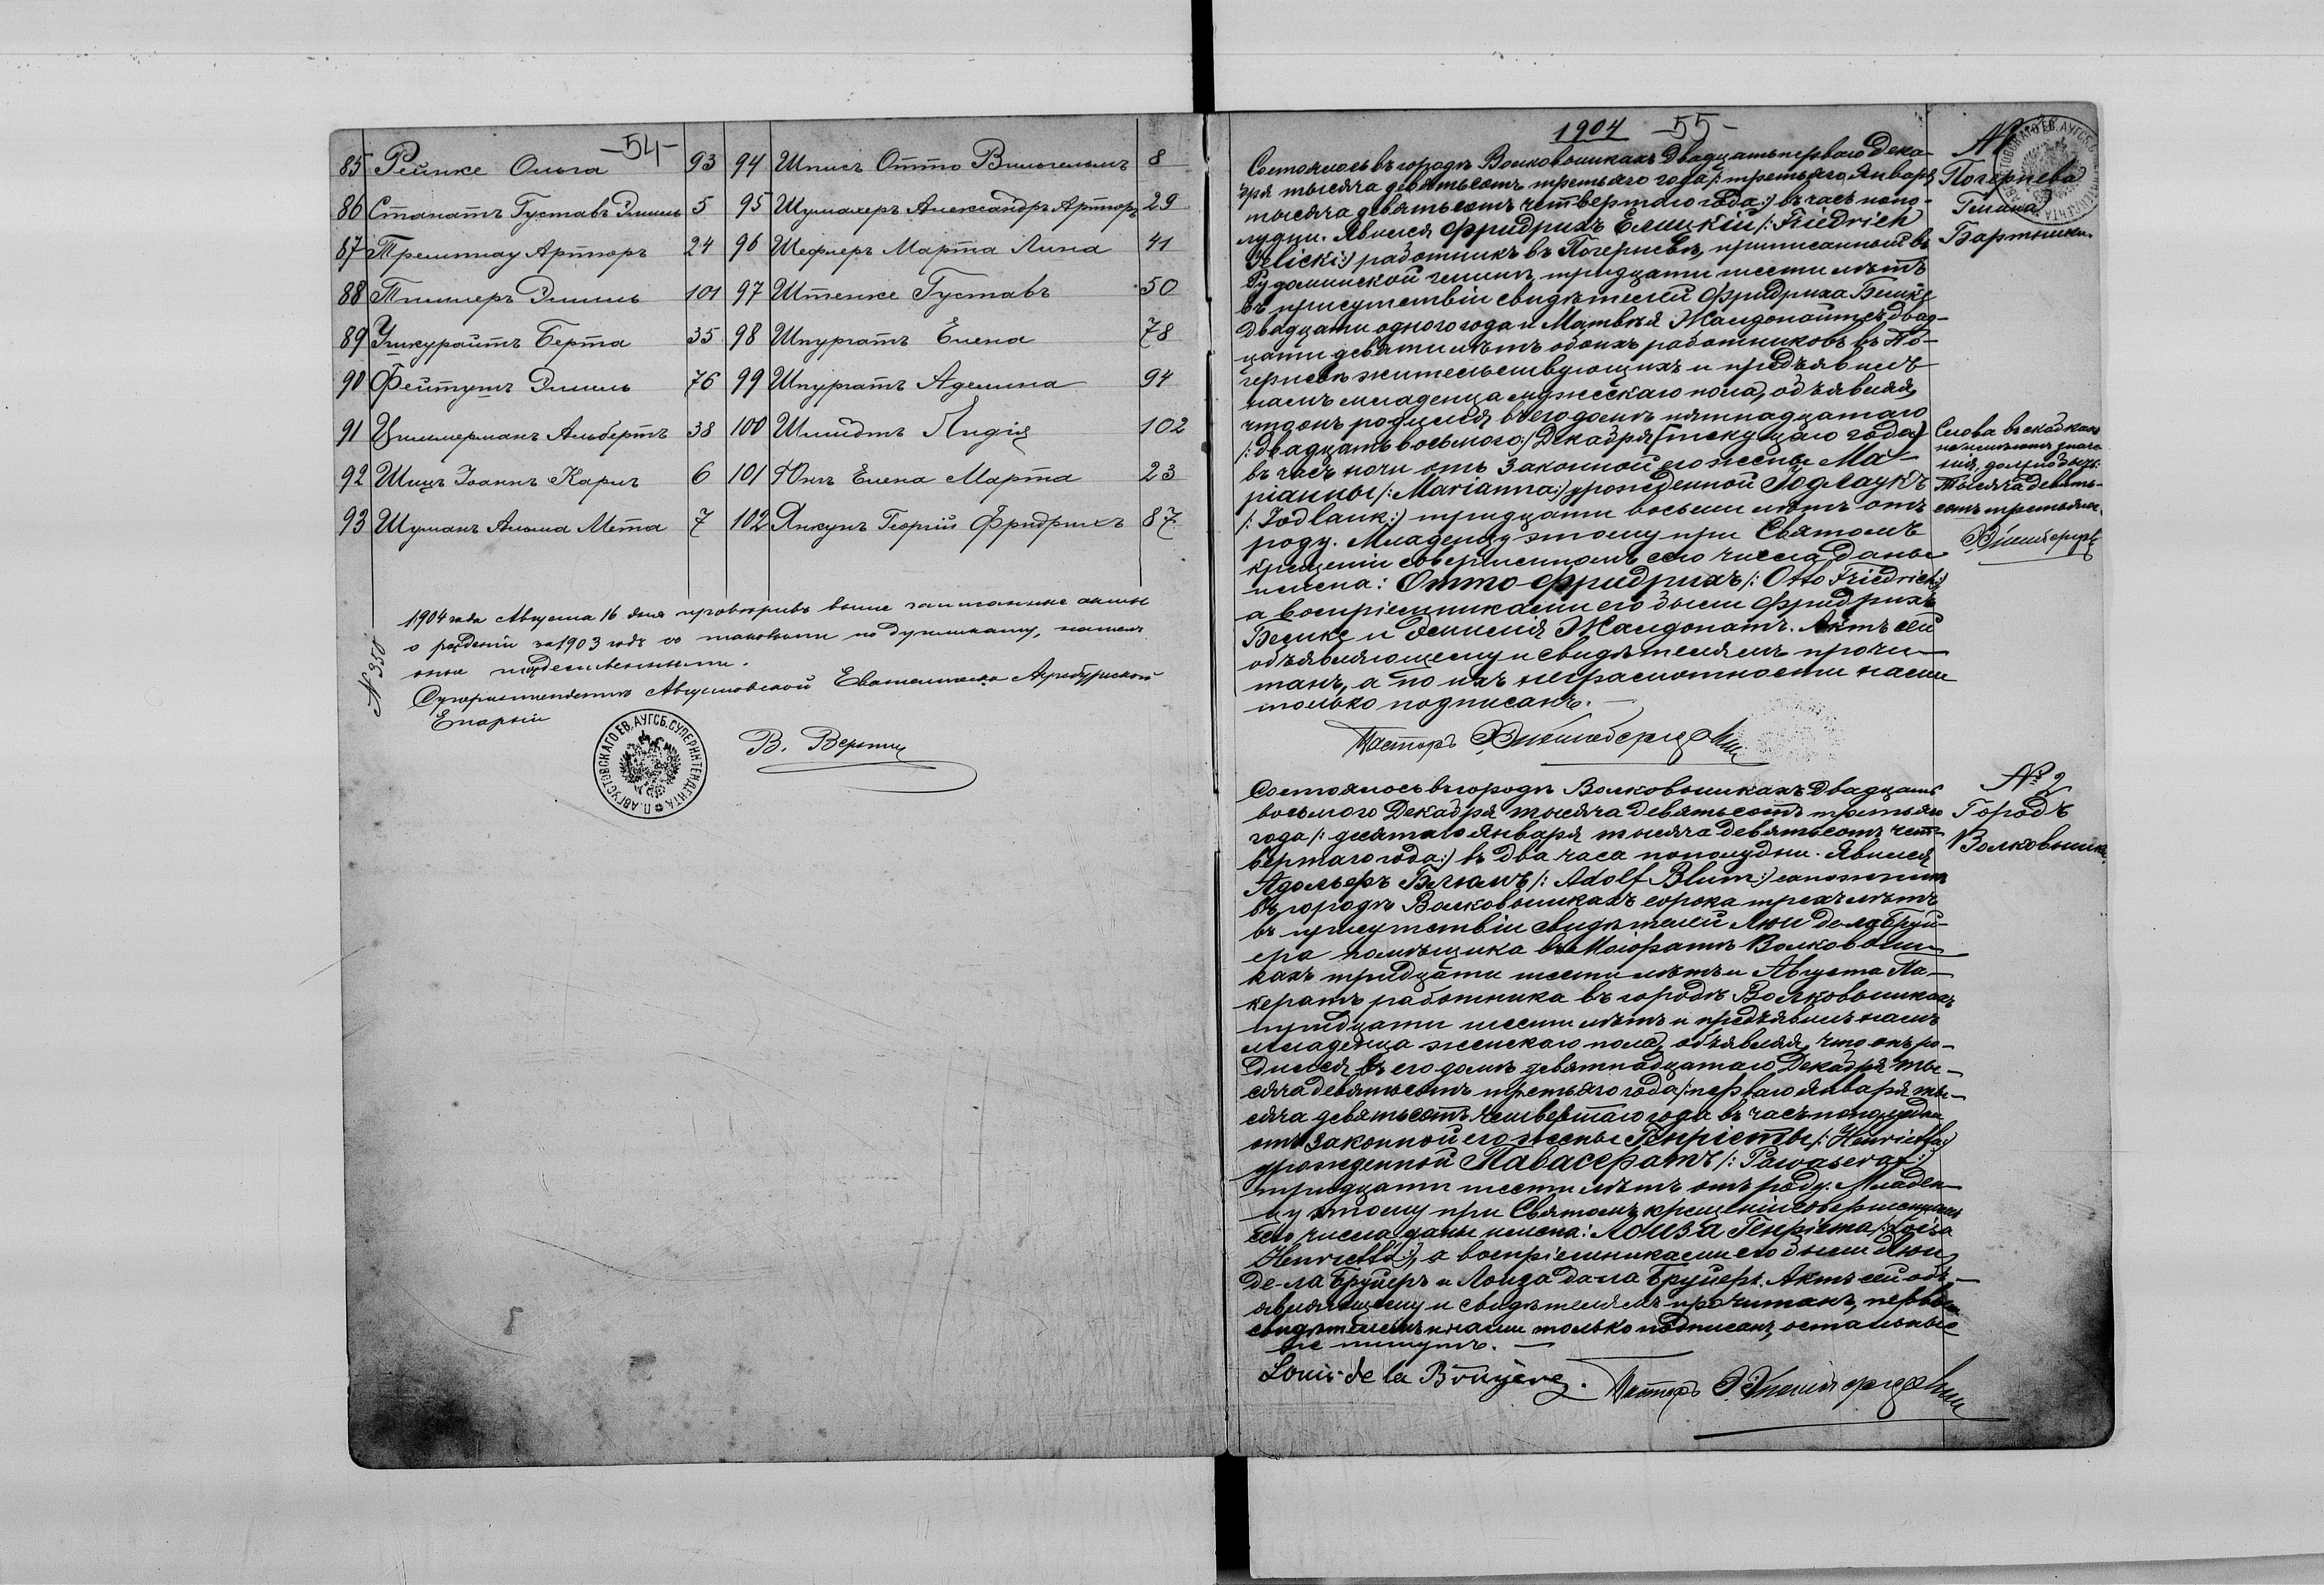 -54-
85 Рейнке Ольга 93
86 Станатъ Густавъ Эмиль 5
87 Тремпнау Артуръ 24
88 Тиммеръ Эмиль 101
89 Уникурайтъ Берта 35
90 Фейтумъ Эмиль 76
91 Циммерманъ Альбертъ 38
92 Шицъ Іоаннъ Карлъ 6
93 Шуманъ Альма Мета 7
94 Шписъ Отто Вильгельмъ 8
95 Шумахеръ Александръ Артуръ 29
96 Шефлеръ Марта Лина 41
97 Штенке Густавъ 50
98 Шпургатъ Елена 78
99 Шпургатъ Аделина 94
100 Шмидтъ Лидія 102
101 Юнъ Елена Марта 23
102 Янкунъ Георгій Фридрихъ 87
1904 года Августа 16 дня провѣривъ выше записанные акты
о рожденіи за 1903 годъ со таковыми по дупликату, нашелъ
оные тождественными.
Суперинтендентъ Августовской Евангелическо Аугсбургской
Епархіи
№ 350
П. АВГУСТОВСКАГО ЕВ. АУГСБ. СУПЕРИНТЕНДЕНТА
1904 -55-
Состоялось въ городѣ Волковышкахъ двадцать перваго Декабря
тысяча девятьсотъ третьяго года /: третьяго Января
тысяча девятьсотъ четвертаго года :/ въ часъ попо-
лудни. Явился Фридрихъ Елицкій /: Friedrich
Jelicki :/ работникъ въ Погерневѣ, приписанный въ
гминѣ, тридцати шести лѣтъ
въ присутствіи свидѣтелей Фридриха
двадцати одного года и Матвѣя двад-
цати девяти лѣтъ обоихъ работниковъ въ По-
герневѣ жительствующихъ и предъявилъ
намъ младенца мужескаго пола, объявляя,
что онъ родился въ его домѣ пятнадцатаго
/: двадцать восьмого :/ Декабря (текущаго года)
въ часъ ночи отъ законной его жены Ма-
ріанны /: Marianna :/ урожденной Іодлаукъ
/: Jodlauk :/ тридцати восьми лѣтъ отъ
роду. Младенцу этому при Святомъ
крещеніи совершенномъ сего числа, даны
имена: Отто Фридрихъ /: Otto Friedrich :/
а воспріемниками его были Фридрихъ
и Эмилія Жалдонатъ. Актъ сей
объявляющему и свидѣтелямъ прочи-
танъ, а по ихъ неграмотности нами
только подписанъ.
Пасторъ
№ 1
Погернева
Гмина
Бартники
Слова въ скобкахъ
не имѣютъ значе-
нія, должно быть:
тысяча девять-
сотъ третьяго.
Состоялось въ городѣ Волковышкахъ двадцать
восьмого Декабря тысяча девятьсотъ третьяго
года /: десятаго Января тысяча девятьсотъ чет-
вертаго года :/ въ два часа пополудни. Явился
Адольфъ Блюмъ /: Adolf Blum :/ сапожникъ
въ городѣ Волковышкахъ сорока трехъ лѣтъ
въ присутствіи свидѣтелей Люи де ла Бруй-
ера помѣщика въ Маіоратѣ Волковыш-
кахъ тридцати шести лѣтъ и Августа Па-
кератъ работника въ городѣ Волковышкахъ
тридцати шести лѣтъ и предъявилъ намъ
младенца женскаго пола, объявляя, что онъ ро-
дился въ его домѣ девятнадцатаго Декабря ты-
сяча девятьсотъ третьяго года /: перваго Января ты-
сяча девятьсотъ четвертаго года въ часъ пополудни
отъ законной его жены Генріеты /: Henrietta :/
урожденной Павасератъ /: Pawaserat :/
тридцати шести лѣтъ отъ роду. Младен-
цу этому при Святомъ крещеніи совершенномъ
сего числа даны имена: Лоиза Генріета /: Loisa
Henrietta :/, а воспріемниками его были Люи
де-ла Бруйеръ и Лоиза дела Бруйеръ. Актъ сей объ-
являющему и свидѣтелямъ прочитанъ, первымъ
свидѣтелемъ и нами только подписанъ, остальные
не пишутъ.
Louis de la Bruyère. Пасторъ
№ 2
Городъ
Волковышки